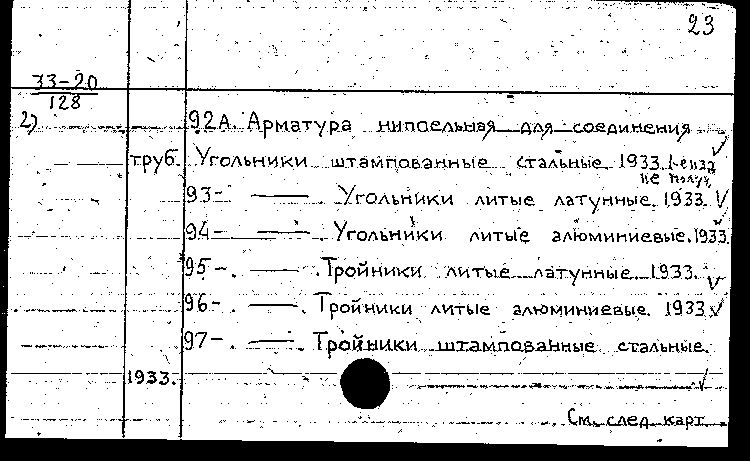 23
33-20
128
2)
92А. Арматура нипельная для соединения
труб. Угольники штампованные стальные 1933.
не получ.
93-. —— Угольники литые латунные. 1933. V
94-. ——. Угольники литые алюминиевые. 1933.
95-. ——. Тройники литые латунные. 1933. V
96-. ——. Тройники литые алюминиевые. 1933 V
97-. ——. Тройники штампованные стальные.
1933. V
См. след. карт.